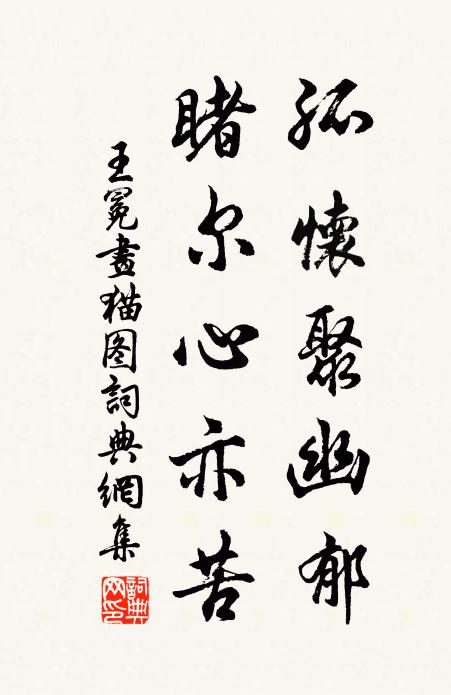 孤懷聚幽郁
睹尔心亦苦
王冕畫猫图詞典網集
詞典
网印